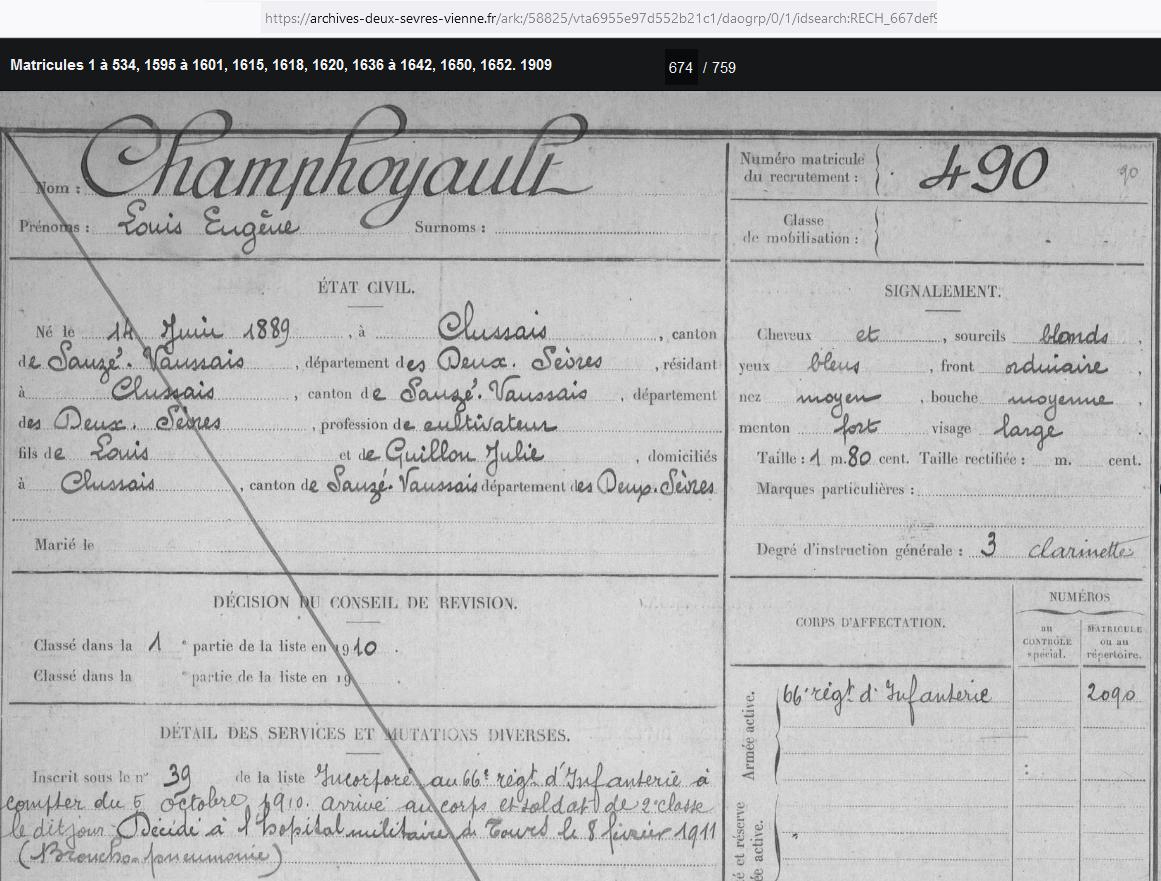 https://archives-deux-sevres-vienne.fr/ark:/58825/vta6955e97d552b21c1/daogrp/0/1/idsearch:RECH_667def9
Matricules 1 à 534, 1595 à 1601, 1615, 1618, 1620, 1636 à 1642, 1650, 1652. 1909
674 / 759
Nom : Champhoyault
Prénoms : Louis Eugène Surnoms :
ÉTAT CIVIL.
Né le 14 Juin 1889, à Clussais, canton
de Sauzé-Vaussais, département des Deux-Sèvres, résidant
à Clussais, canton de Sauzé-Vaussais, département
des Deux-Sèvres, profession de cultivateur
fils de Louis et de Guillon Julie, domiciliés
à Clussais, canton de Sauzé-Vaussais département des Deux-Sèvres
Marié le
DÉCISION DU CONSEIL DE REVISION.
Classé dans la 1e partie de la liste en 1910.
Classé dans la e partie de la liste en 19
DÉTAIL DES SERVICES ET MUTATIONS DIVERSES.
Inscrit sous le n° 39 de la liste Incorporé au 66e régt d'Infanterie à
compter du 5 octobre 1910. arrivé au corps et soldat de 2e classe
le dit jour Décédé à l'hôpital militaire de Tours le 8 février 1911
(Broncho-pneumonie)
Numéro matricule
du recrutement : 490
90
Classe
de mobilisation :
SIGNALEMENT.
Cheveux et, sourcils blonds,
yeux bleus, front ordinaire,
nez moyen, bouche moyenne,
menton fort visage large
Taille : 1 m. 80 cent. Taille rectifiée : m. cent.
Marques particulières :
Degré d'instruction générale : 3 clarinette
CORPS D'AFFECTATION.
NUMÉROS
au
CONTRÔLE
spécial.
MATRICULE
ou au
répertoire.
Armée active.
66e régt d'Infanterie 2090
et réserve
active.